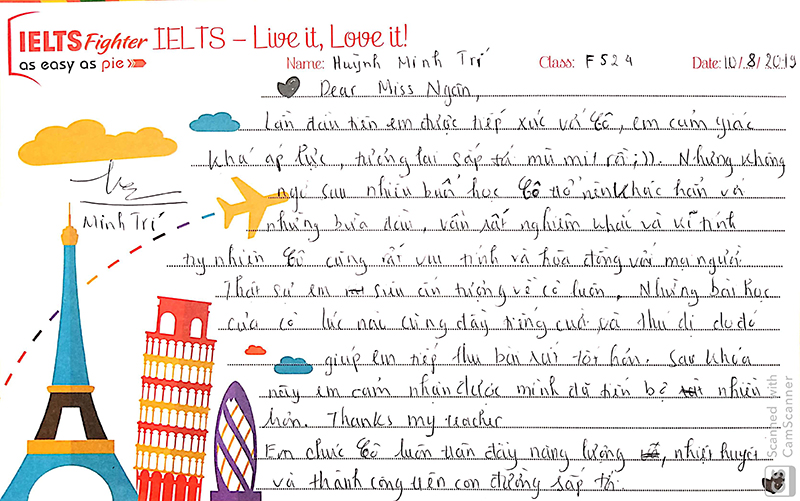 IELTS Fighter IELTS – Live it, Love it!
as easy as pie
Name: Huỳnh Minh Trí Class: F524 Date: 10/8/2019
Dear Miss Ngân,
Lần đầu tiên em được tiếp xúc với Cô, em cảm giác
khá áp lực, tương lai sắp tá mù mịt rồi ;)). Nhưng không
ngờ sau nhiều buổi học Cô trở nên khác hẳn và
những bữa đầu, vẫn rất nghiêm khắc và kĩ tính
tuy nhiên Cô cũng rất vui tính và hòa đồng với mọi người
Thật sự em ấn tượng về cô luôn, Những bài học
của cô lúc nào cũng đầy tiếng cười và thú dị do đó
giúp em tiếp thu bài tốt hơn. Sau khóa
này em cảm nhận được mình đã tiến bộ nhiều
hơn. Thanks my teacher
Em chúc Cô luôn tràn đầy năng lượng, nhiệt huyết
và thành công trên con đường sắp tá.
Minh Trí
Scanned with
CamScanner